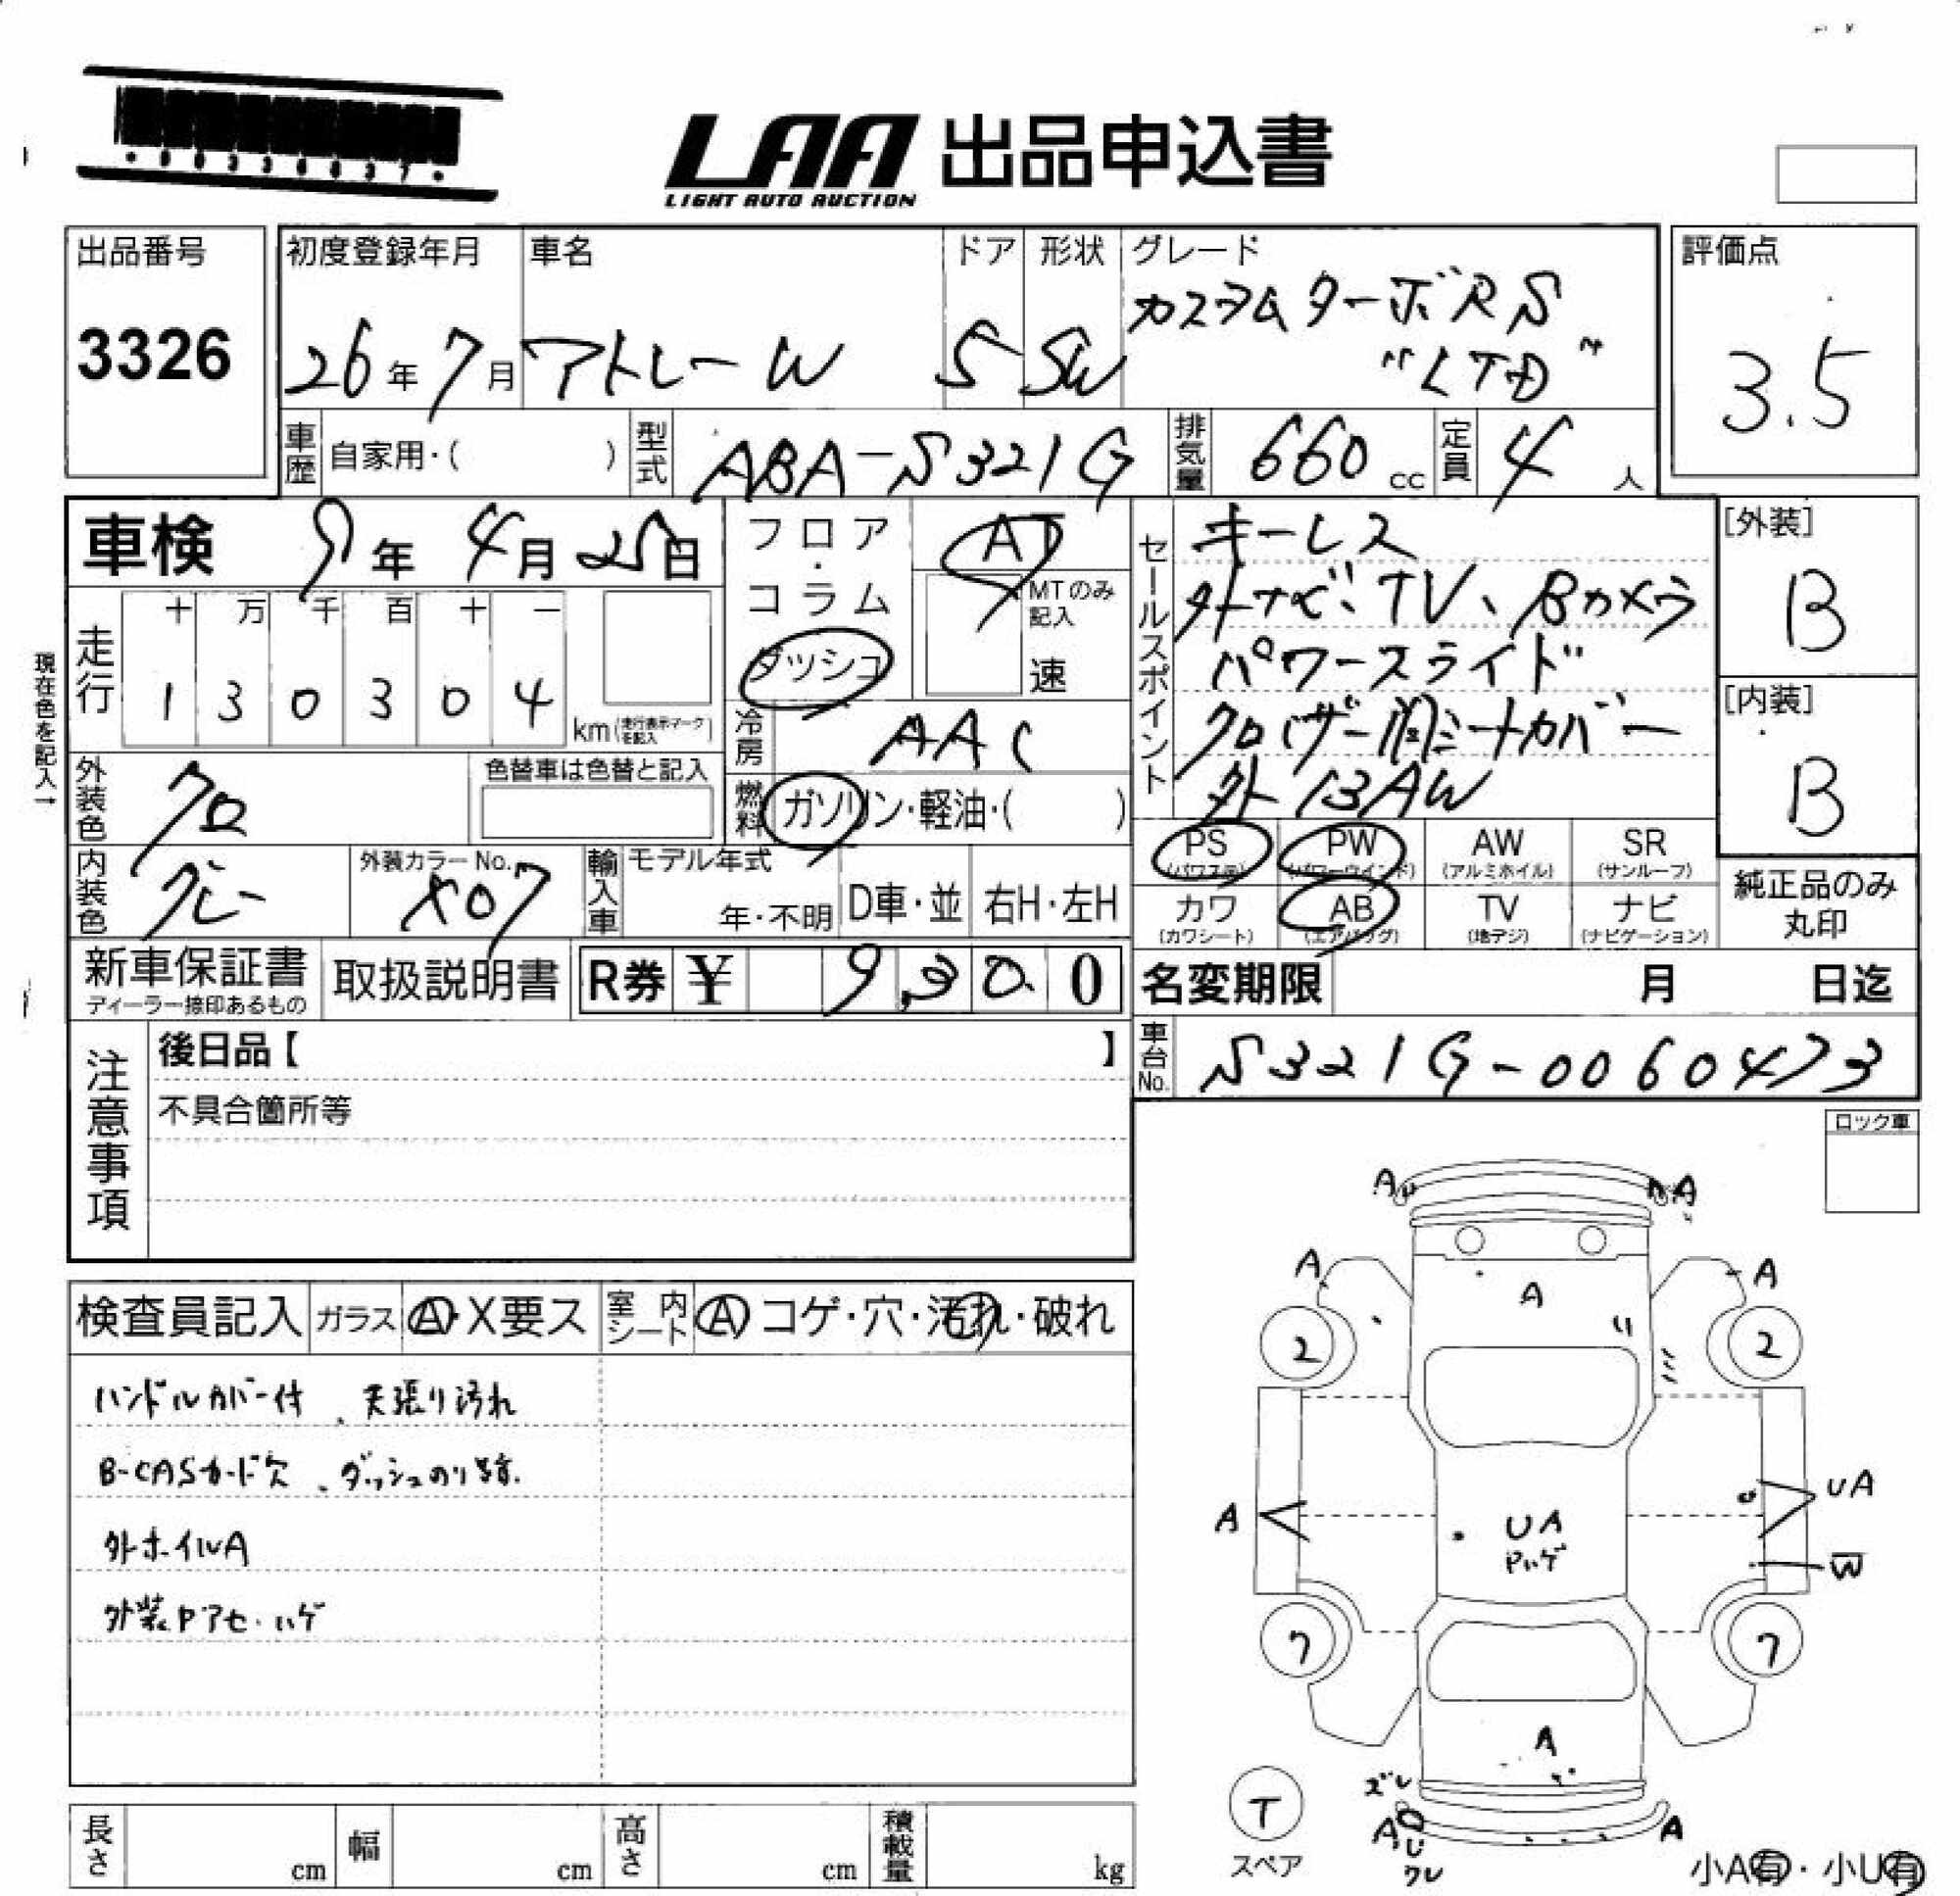 LAA 出品申込書
LIGHT AUTO AUCTION
出品番号
3326
初度登録年月
26年7月
車名
アトレーW
ドア
5
形状
SW
グレード
カスタムターボRS
"LTD"
評価点
3.5
車歴 自家用・( )
型式 ABA-S321G
排気量 660 cc
定員 4 人
車検 9年 4月 25日
走行
十 万 千 百 十 一
1 3 0 3 0 4
km(走行表示マークを記入)
現在色を記入→
フロア・コラム
ダッシュ
AT
MTのみ記入
速
冷房 AAC
燃料 ガソリン・軽油・( )
セールスポイント
キーレス
外ナビ、TV、Bカメラ
パワースライド
シートカバー
外13AW
[外装]
B
[内装]
B
外装色 クロ
色替車は色替と記入
内装色 グレー
外装カラーNo.
X07
輸入車
モデル年式
年・不明
D車・並
右H・左H
PS (パワステ)
PW (パワーウインド)
AW (アルミホイル)
SR (サンルーフ)
カワ (カワシート)
AB (エアバッグ)
TV (地デジ)
ナビ (ナビゲーション)
純正品のみ
丸印
新車保証書
ディーラー捺印あるもの
取扱説明書
R券 ¥ 9,300
名変期限 月 日迄
車台No. S321G-0060473
注意事項
後日品【 】
不具合箇所等
ロック車
検査員記入
ガラス A・X要ス
室内シート A コゲ・穴・汚れ・破れ
ハンドルカバー付、天張り汚れ
B-CASカード欠、ダッシュのり跡.
外ホイルA
外装Pアセ・ハゲ
A A
A A
A
2 2
A UA
UA
Pハゲ
W
7 7
A
ズレ
A U A
ワレ
T
スペア
小A有・小U有
長さ cm
幅 cm
高さ cm
積載量 kg